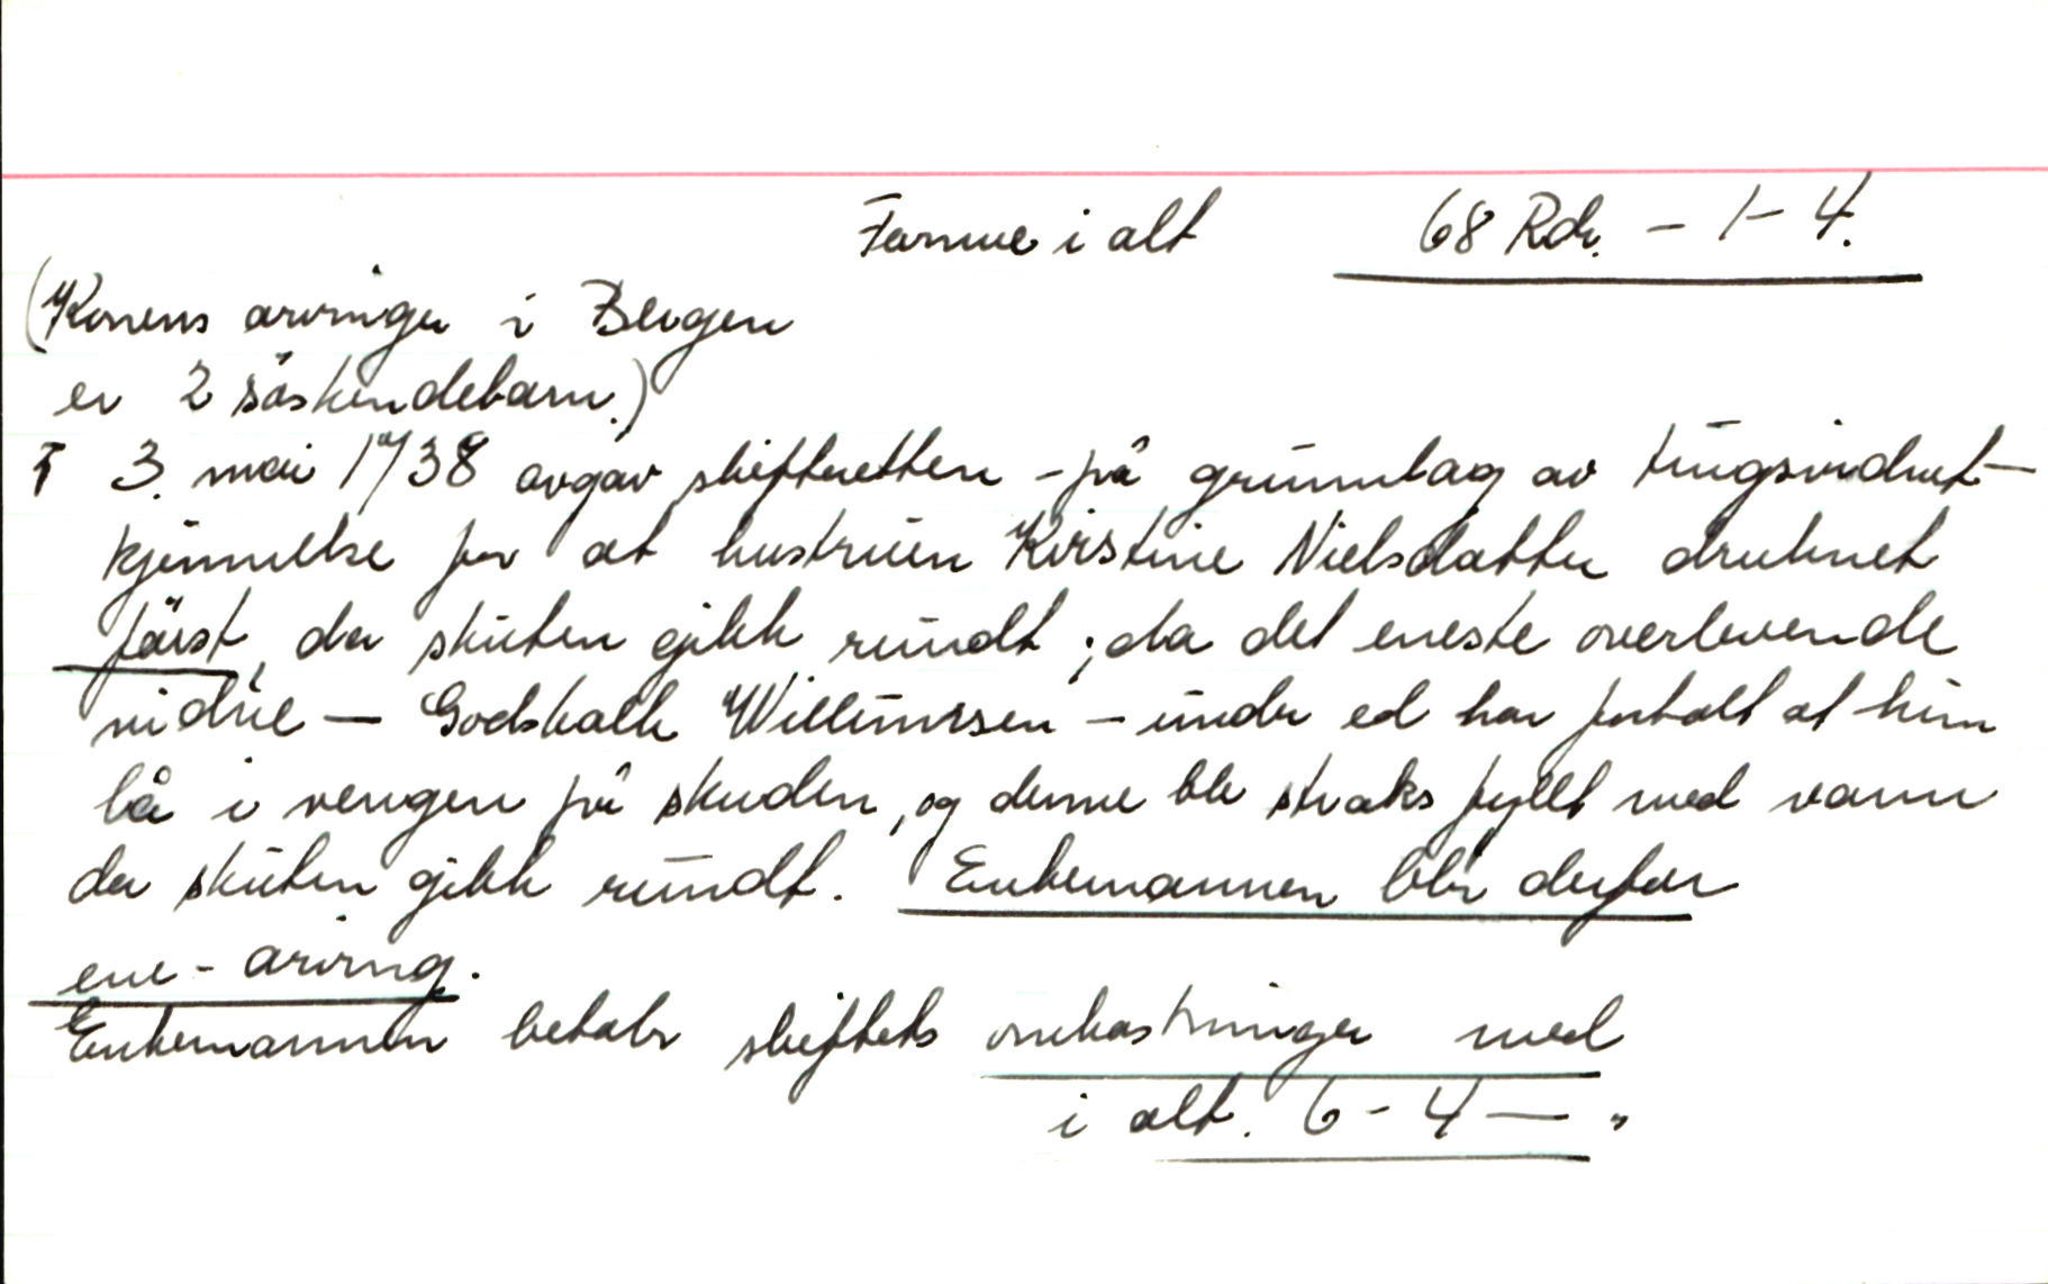 Formue i alt 68 Rdr. - 1 - 4.
(Konens arvinger i Bergen
er 2 söskendebarn.)
I 3. mai 1738 avgav skifteretten - på grunnlag av tingsvidnet -
kjennelse for at hustruen Kirstine Nielsdatter druknet
först, da skuten gikk rundt; da det eneste overlevende
vidne — Godskalk Willumssen - under ed har fortalt at hun
lå i vengen på skuden, og denne ble straks fyllt med vann
da skuten gikk rundt. Enkemannen blir derfor
ene-arving.
Enkemannen betaler skiftets omkostninger med
i alt. 6 - 4 — "